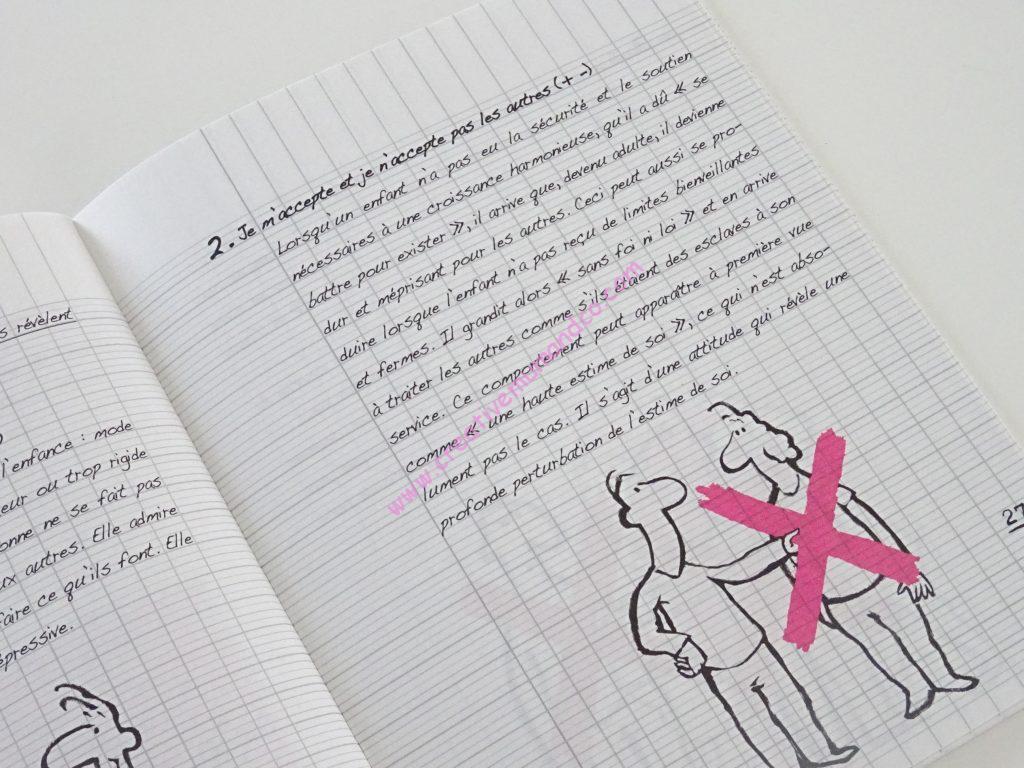 s révèlent
)
l'enfance : mode
eur ou trop rigide
onne ne se fait pas
ux autres. Elle admire
faire ce qu'ils font. Elle
épressive.
2. Je m'accepte et je n'accepte pas les autres (+ -)
Lorsqu'un enfant n'a pas eu la sécurité et le soutien
nécessaires à une croissance harmonieuse, qu'il a dû « se
battre pour exister », il arrive que, devenu adulte, il devienne
dur et méprisant pour les autres. Ceci peut aussi se pro-
duire lorsque l'enfant n'a pas reçu de limites bienveillantes
et fermes. Il grandit alors « sans foi ni loi » et en arrive
à traiter les autres comme s'ils étaient des esclaves à son
service. Ce comportement peut apparaître à première vue
comme « une haute estime de soi », ce qui n'est abso-
lument pas le cas. Il s'agit d'une attitude qui révèle une
profonde perturbation de l'estime de soi.
27
www.creativemumandco.com